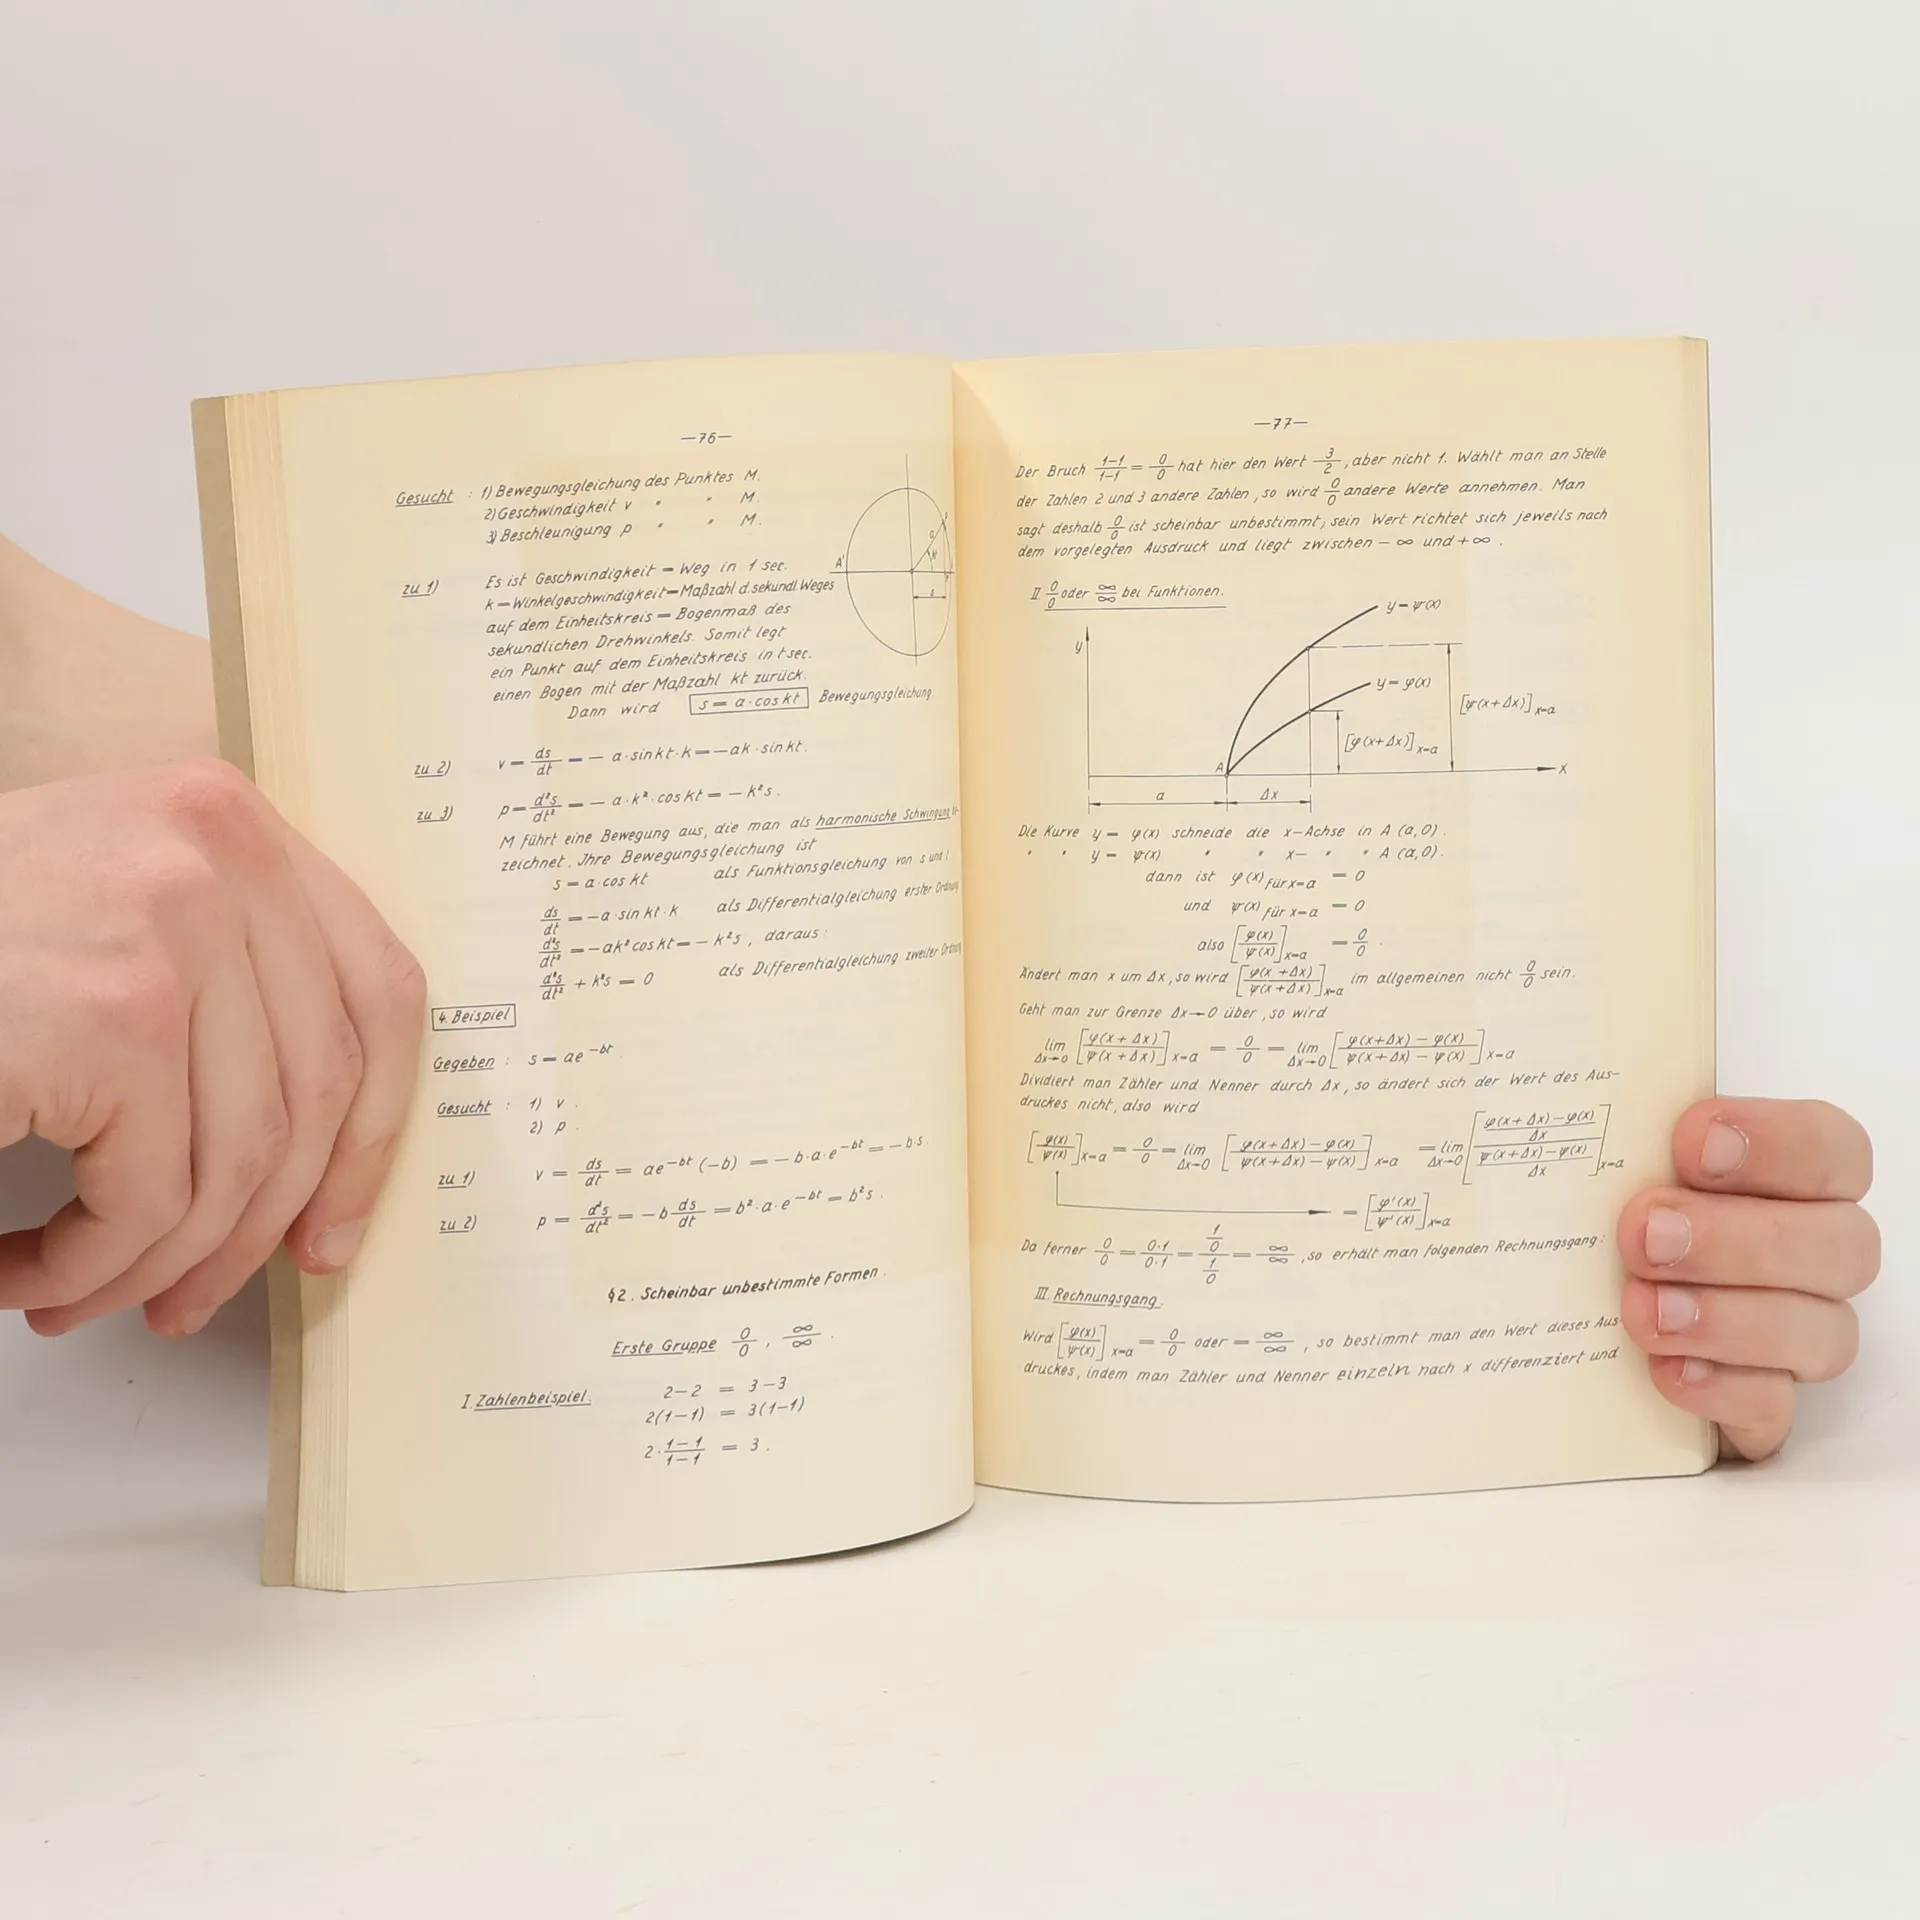 —76—
Gesucht : 1) Bewegungsgleichung des Punktes M.
2) Geschwindigkeit v " " M.
3) Beschleunigung p " " M.
A'
zu 1) Es ist Geschwindigkeit = Weg in 1 sec.
k = Winkelgeschwindigkeit = Maßzahl d. sekundl. Weges
auf dem Einheitskreis = Bogenmaß des
sekundlichen Drehwinkels. Somit legt
ein Punkt auf dem Einheitskreis in t sec.
einen Bogen mit der Maßzahl kt zurück.
Dann wird s = a·cos kt Bewegungsgleichung.
zu 2) v = ds/dt = − a·sin kt·k = −ak·sin kt.
zu 3) p = d²s/dt² = − a·k²·cos kt = − k²s.
M führt eine Bewegung aus, die man als harmonische Schwingung be-
zeichnet. Ihre Bewegungsgleichung ist
s = a·cos kt als Funktionsgleichung von s und t
ds/dt = −a·sin kt·k als Differentialgleichung erster Ordnung
d²s/dt² = −ak² cos kt = − k²s, daraus:
d²s/dt² + k²s = 0 als Differentialgleichung zweiter Ordnung
4. Beispiel
Gegeben : s = ae^−bt.
Gesucht : 1) v.
2) p.
zu 1) v = ds/dt = ae^−bt (−b) = −b·a·e^−bt = −b·s.
zu 2) p = d²s/dt² = −b ds/dt = b²·a·e^−bt = b²s.
§2. Scheinbar unbestimmte Formen.
Erste Gruppe 0/0, ∞/∞.
I. Zahlenbeispiel. 2−2 = 3−3
2(1−1) = 3(1−1)
2·(1−1)/(1−1) = 3.
—77—
Der Bruch (1−1)/(1−1) = 0/0 hat hier den Wert 3/2, aber nicht 1. Wählt man an Stelle
der Zahlen 2 und 3 andere Zahlen, so wird 0/0 andere Werte annehmen. Man
sagt deshalb 0/0 ist scheinbar unbestimmt; sein Wert richtet sich jeweils nach
dem vorgelegten Ausdruck und liegt zwischen − ∞ und + ∞.
II. 0/0 oder ∞/∞ bei Funktionen.
y = ψ(x)
y
y = φ(x)
[ψ(x+Δx)]x=a
[φ(x+Δx)]x=a
A
x
a Δx
Die Kurve y = φ(x) schneide die x−Achse in A (a,0).
" " y = ψ(x) " " x− " " A (a,0).
dann ist φ(x) für x=a = 0
und ψ(x) für x=a = 0
also [φ(x)/ψ(x)]x=a = 0/0.
Ändert man x um Δx, so wird [φ(x+Δx)/ψ(x+Δx)]x=a im allgemeinen nicht 0/0 sein.
Geht man zur Grenze Δx→0 über, so wird
lim Δx→0 [φ(x+Δx)/ψ(x+Δx)]x=a = 0/0 = lim Δx→0 [(φ(x+Δx)−φ(x))/(ψ(x+Δx)−ψ(x))]x=a
Dividiert man Zähler und Nenner durch Δx, so ändert sich der Wert des Aus-
druckes nicht, also wird
[φ(x)/ψ(x)]x=a = 0/0 = lim Δx→0 [(φ(x+Δx)−φ(x))/(ψ(x+Δx)−ψ(x))]x=a = lim Δx→0 [((φ(x+Δx)−φ(x))/Δx)/((ψ(x+Δx)−ψ(x))/Δx)]x=a
= [φ'(x)/ψ'(x)]x=a
Da ferner 0/0 = (0·1)/(0·1) = (1/0)/(1/0) = ∞/∞, so erhält man folgenden Rechnungsgang:
III. Rechnungsgang.
Wird [φ(x)/ψ(x)]x=a = 0/0 oder = ∞/∞, so bestimmt man den Wert dieses Aus-
druckes, indem man Zähler und Nenner einzeln nach x differenziert und